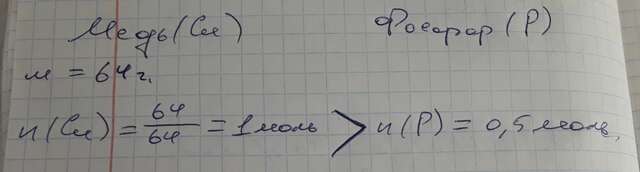 Медь (Cu) Фосфор (P)
m = 64 г.
n (Cu) = 64/64 = 1 моль > n (P) = 0,5 моль.